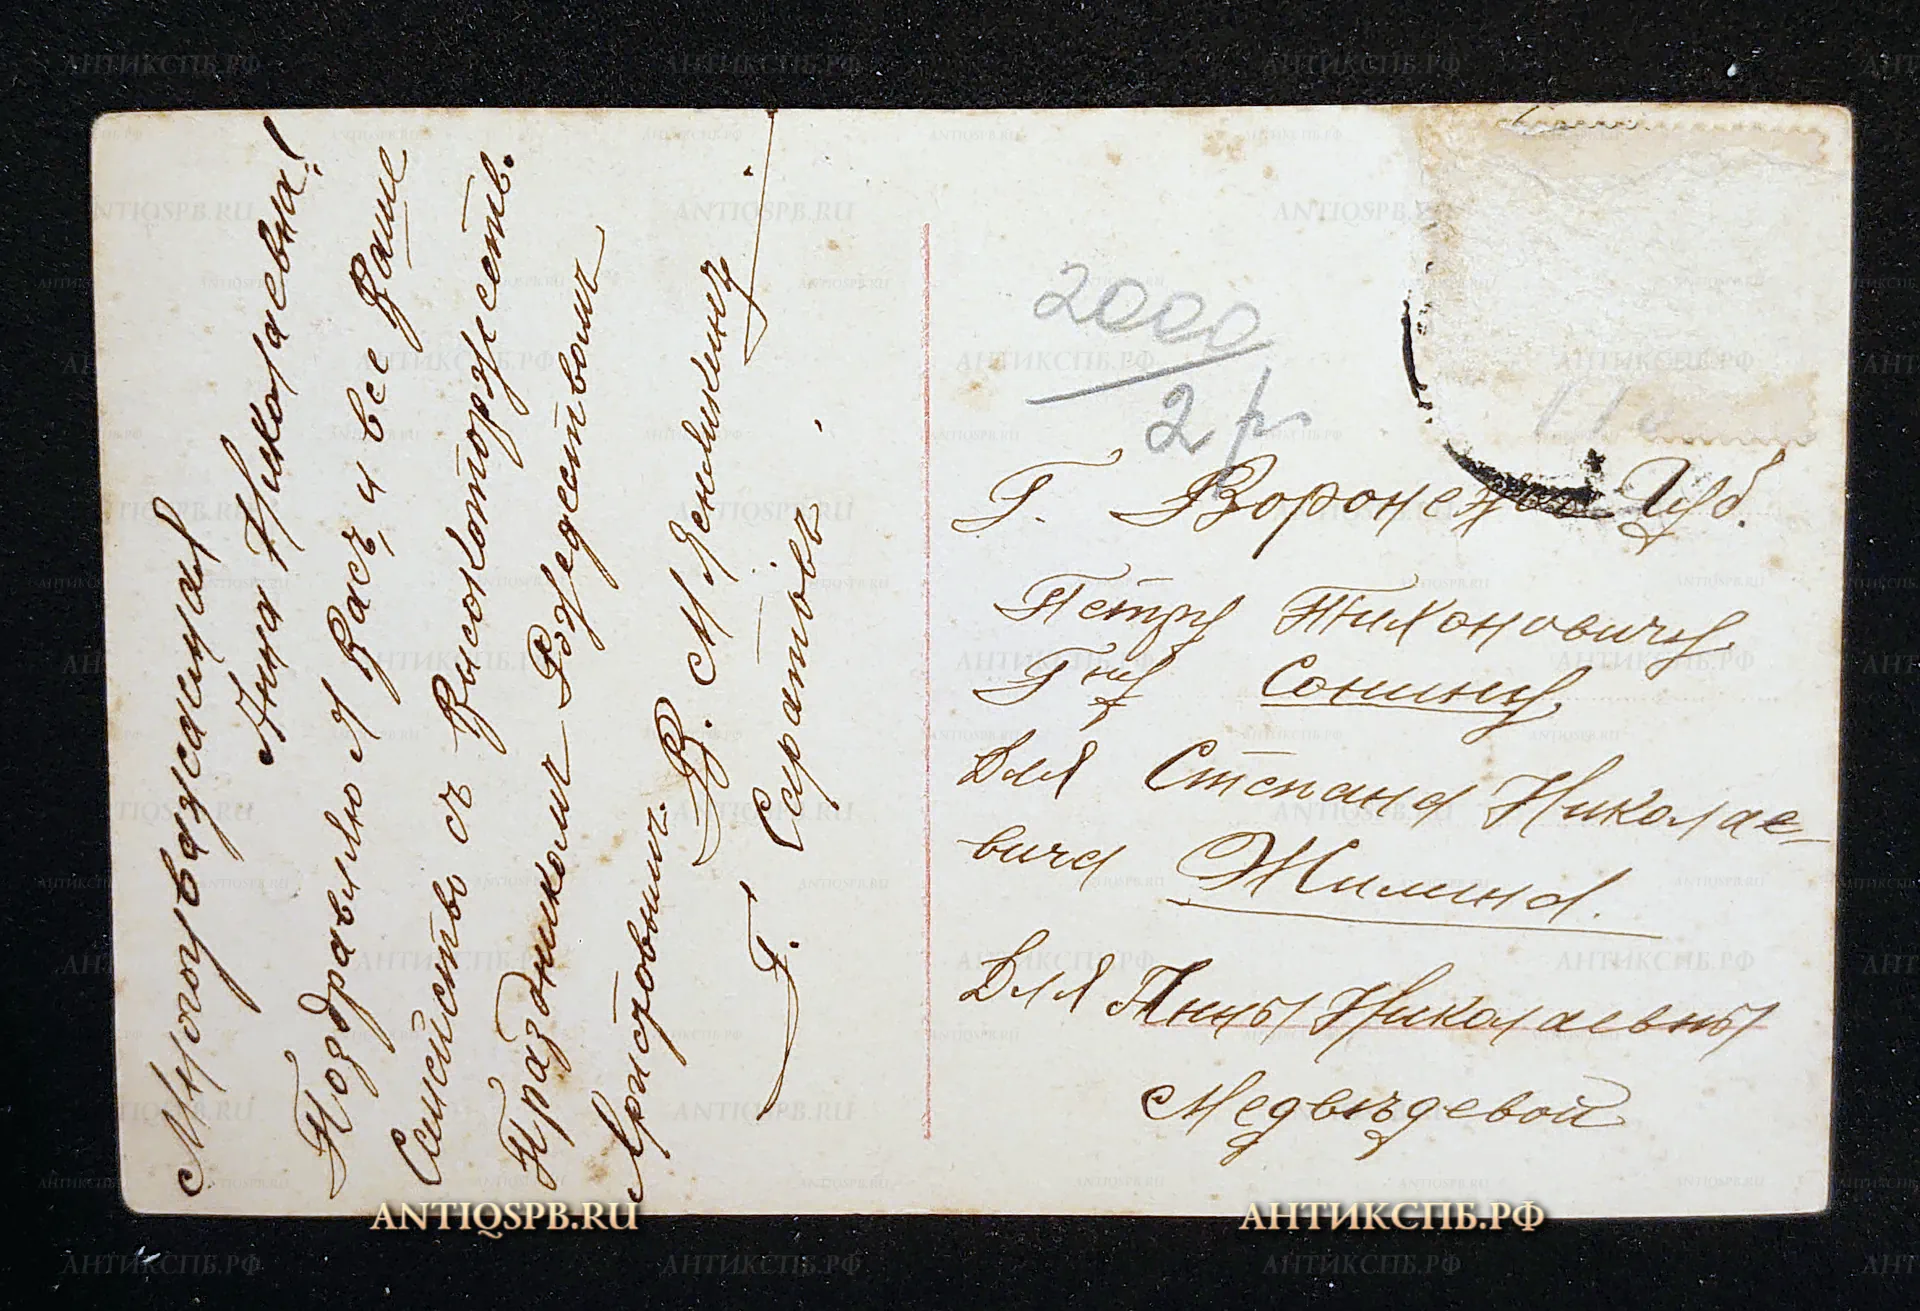 Многоуважаемая
Анна Николаевна!
Поздравлю я Васъ, и все Ваше
Семейство съ Высокоторжеств.
Праздникомъ Рождествомъ
Христовымъ.
В. М.
Г. Саратовъ.
2000
2 р
Г. Воронежъ Губ.
Петру Тихоновичу
Гну Сонину,
Для Степана Николае-
вича Жилина.
Для Анны Николаевны
Медвѣдевой
ANTIQSPB.RU
АНТИКСПБ.РФ